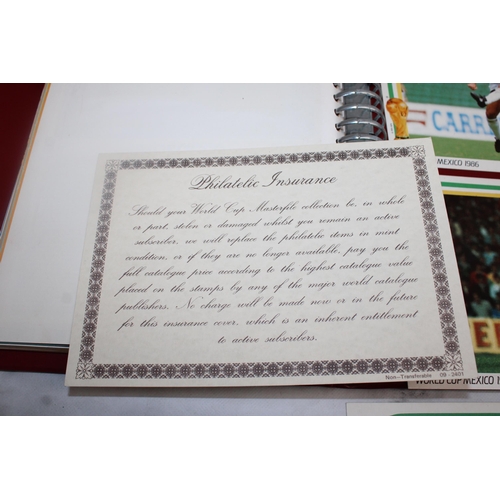 CARR
MEXICO 1986
Philatelic Insurance
Should your World Cup Masterfile collection be, in whole
or part, stolen or damaged whilst you remain an active
subscriber, we will replace the philatelic items in mint
condition, or if they are no longer available, pay you the
full catalogue price according to the highest catalogue value
placed on the stamps by any of the major world catalogue
publishers. No charge will be made now or in the future
for this insurance cover, which is an inherent entitlement
to active subscribers.
Non-Transferable 09-2401
WORLD CUP MEXICO 1